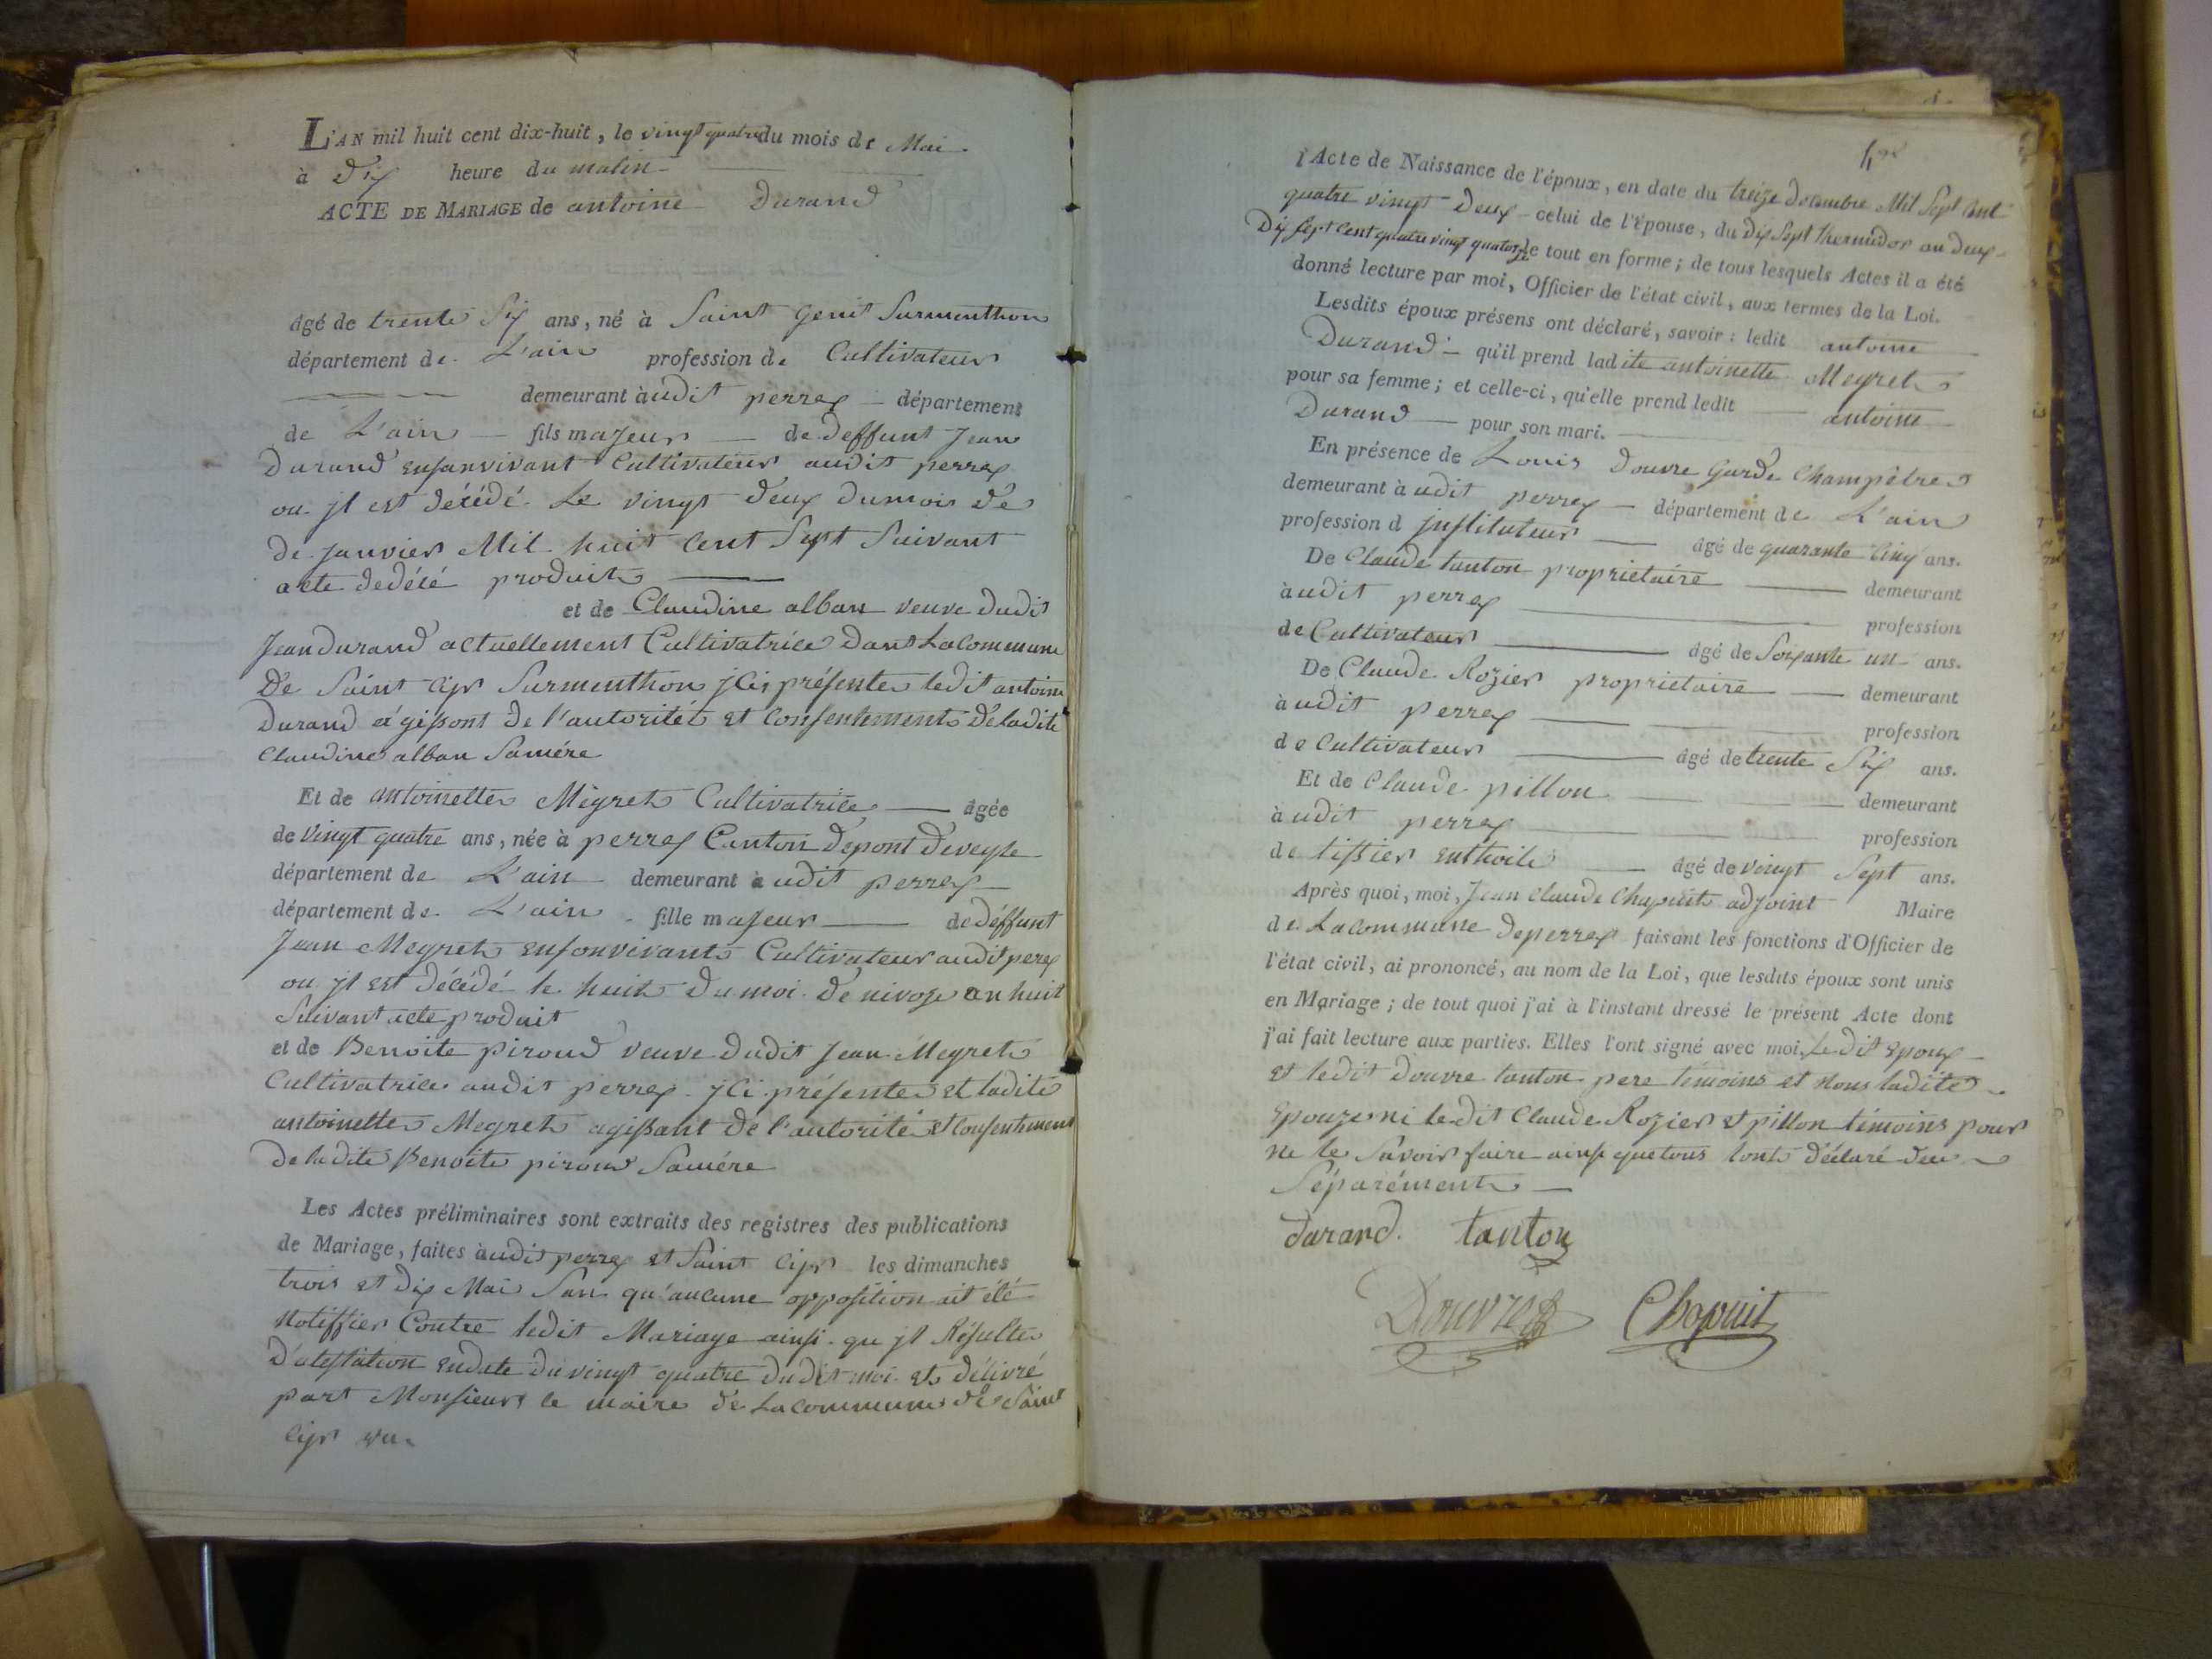 L'AN mil huit cent dix-huit, le vingt quatre du mois de Mai
à dix heure du matin
ACTE DE MARIAGE de antoine Durand
âgé de trente Six ans, né à Saint Genit Surmenthon
département de L'ain profession de Cultivateur
demeurant àudit perrex département
de L'ain fils majeur de deffunt Jean
Durand ensonvivant Cultivateur audit perrex
ou jl est décédé Le vingt deux dumois de
de janvier Mil huit Cent Sept Suivant
acte dedécé produit
et de Claudine alban veuve dudit
Jean durand actuellement Cultivatrice dans La Commune
De Saint Cyr Surmenthon jci présente ledit antoine
Durand agissant de l'autorité et Consentement de ladite
Claudine alban Samére
Et de antoinette Mégret Cultivatrice âgée
de vingt quatre ans, née à perrex Canton depont deveyle
département de L'ain demeurant àudit perrex
département de L'ain fille majeur de déffunt
Jean Meyret ensonvivant Cultivateur audit perex
ou jl est décédé le huit du moi de nivose an huit
Suivant acte produit
et de Benoite piroud veuve dudit Jean Meyret
Cultivatrice audit perrex jci présente et ladite
antoinette Meyret agissant de l'autorité et Consentement
de ladite Benoite piroud Samére
Les Actes préliminaires sont extraits des registres des publications
de Mariage, faites àudit perrex et Saint Cyr les dimanches
trois et dix Mai San qu'aucune opposition ait été
Notiffier Contre ledit Mariage ainsi qu jl Résulte
D'atestation endate du vingt quatre dudit moi et délivré
part Monsieur le maire de La Commune de Saint
Cyr
l'Acte de Naissance de l'époux, en date du treize décembre Mil Sept Cent
quatre vingt Deux celui de l'épouse, du dix Sept thermidor an deux
Dix sept Cent quatre vingt quatorze le tout en forme; de tous lesquels Actes il a été
donné lecture par moi, Officier de l'état civil, aux termes de la Loi.
Lesdits époux présens ont déclaré, savoir: ledit antoine
Durand qu'il prend ladite antoinette Meyret
pour sa femme; et celle-ci, qu'elle prend ledit antoine
Durand pour son mari.
En présence de Louis Douvre Garde Champêtre
demeurant àudit perrex département de L'ain
profession d jnstituteur âgé de quarante Cinq ans.
De Claude tanton proprietaire demeurant
àudit perrex profession
de Cultivateur âgé de Soixante un ans.
De Claude Rozier proprietaire demeurant
àudit perrex profession
de Cultivateur âgé de trente Six ans.
Et de Claude pillon demeurant
àudit perrex profession
de tissier enthoile âgé de vingt Sept ans.
Après quoi, moi, Jean Claude Chapuit adjoint Maire
de La Commune deperrex faisant les fonctions d'Officier de
l'état civil, ai prononcé, au nom de la Loi, que lesdits époux sont unis
en Mariage; de tout quoi j'ai à l'instant dressé le présent Acte dont
j'ai fait lecture aux parties. Elles l'ont signé avec moi, Ledit Epoux
et ledit douvre tanton pere témoins et Nous ladite
Epouze ni ledit Claude Rozier et pillon témoins pour
ne le Savoir faire ainsi que tous lont déclaré
Séparément
durand. tanton
Douvre Chapuit